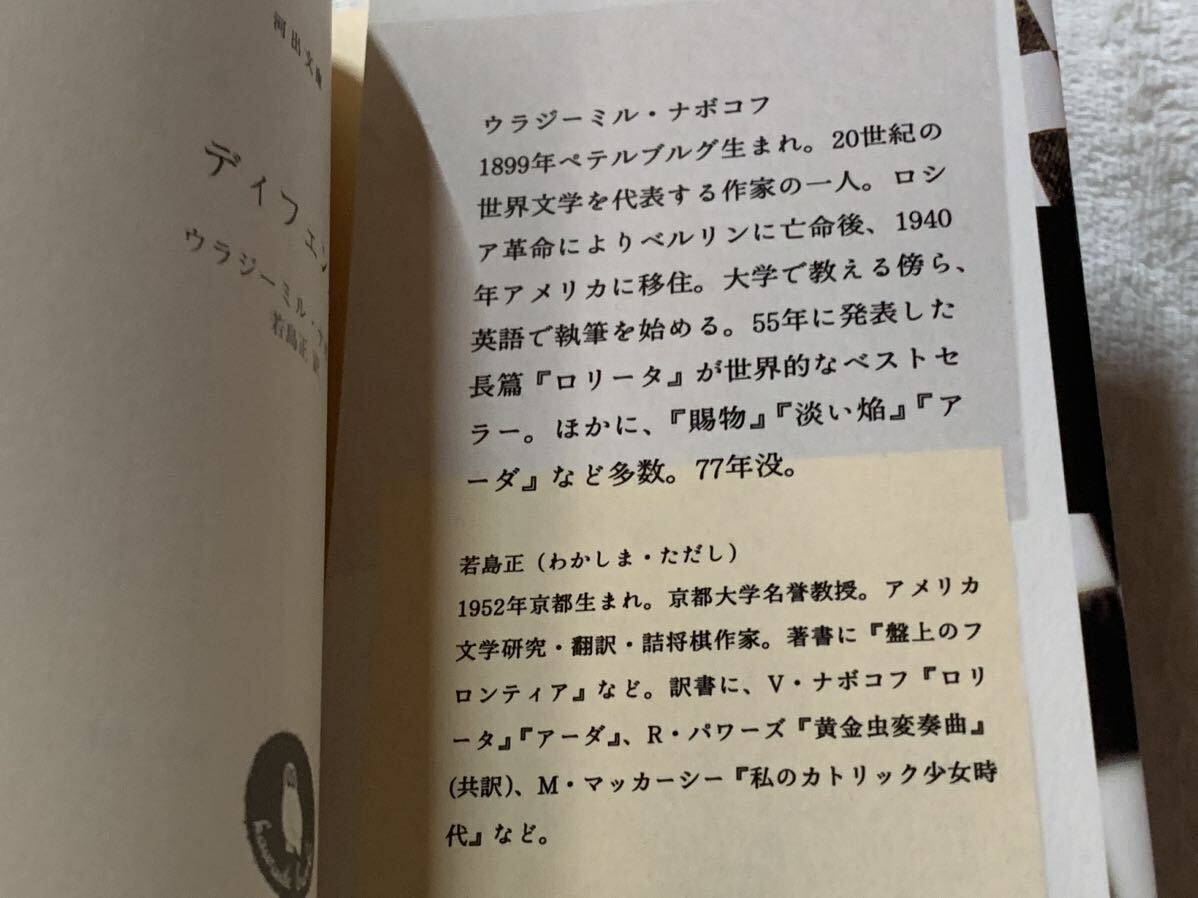 河出文庫
ディフェン
ウラジーミル・ナボ
若島正 訳
ウラジーミル・ナボコフ
1899年ペテルブルグ生まれ。20世紀の
世界文学を代表する作家の一人。ロシ
ア革命によりベルリンに亡命後、1940
年アメリカに移住。大学で教える傍ら、
英語で執筆を始める。55年に発表した
長篇『ロリータ』が世界的なベストセ
ラー。ほかに、『賜物』『淡い焔』『ア
ーダ』など多数。77年没。
若島正（わかしま・ただし）
1952年京都生まれ。京都大学名誉教授。アメリカ
文学研究・翻訳・詰将棋作家。著書に『盤上のフ
ロンティア』など。訳書に、V・ナボコフ『ロリ
ータ』『アーダ』、R・パワーズ『黄金虫変奏曲』
（共訳）、M・マッカーシー『私のカトリック少女時
代』など。